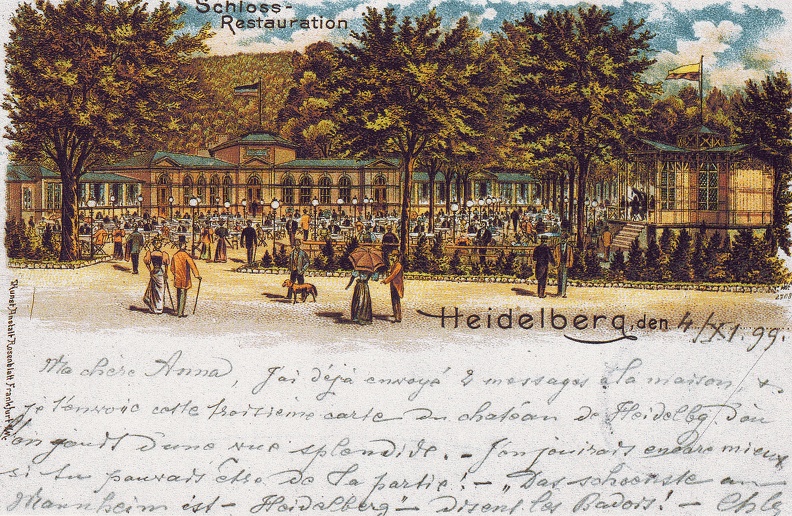 Schloss-
Restauration
Heidelberg, den 4/XI. 99.
Kunst Anstalt Rosenblatt Frankfurt
Ma chère Anna, J'ai déjà envoyé 2 messages à la maison, &
je t'envoie cette troisième carte du chatéau de Heidelbg. d'où
l'on jouit d'une vue splendide. - J'en jouirais encore mieux
si tu pouvais être de la partie! - „Das schoenste an
Mannheim ist - Heidelberg" - disent les Badois! -